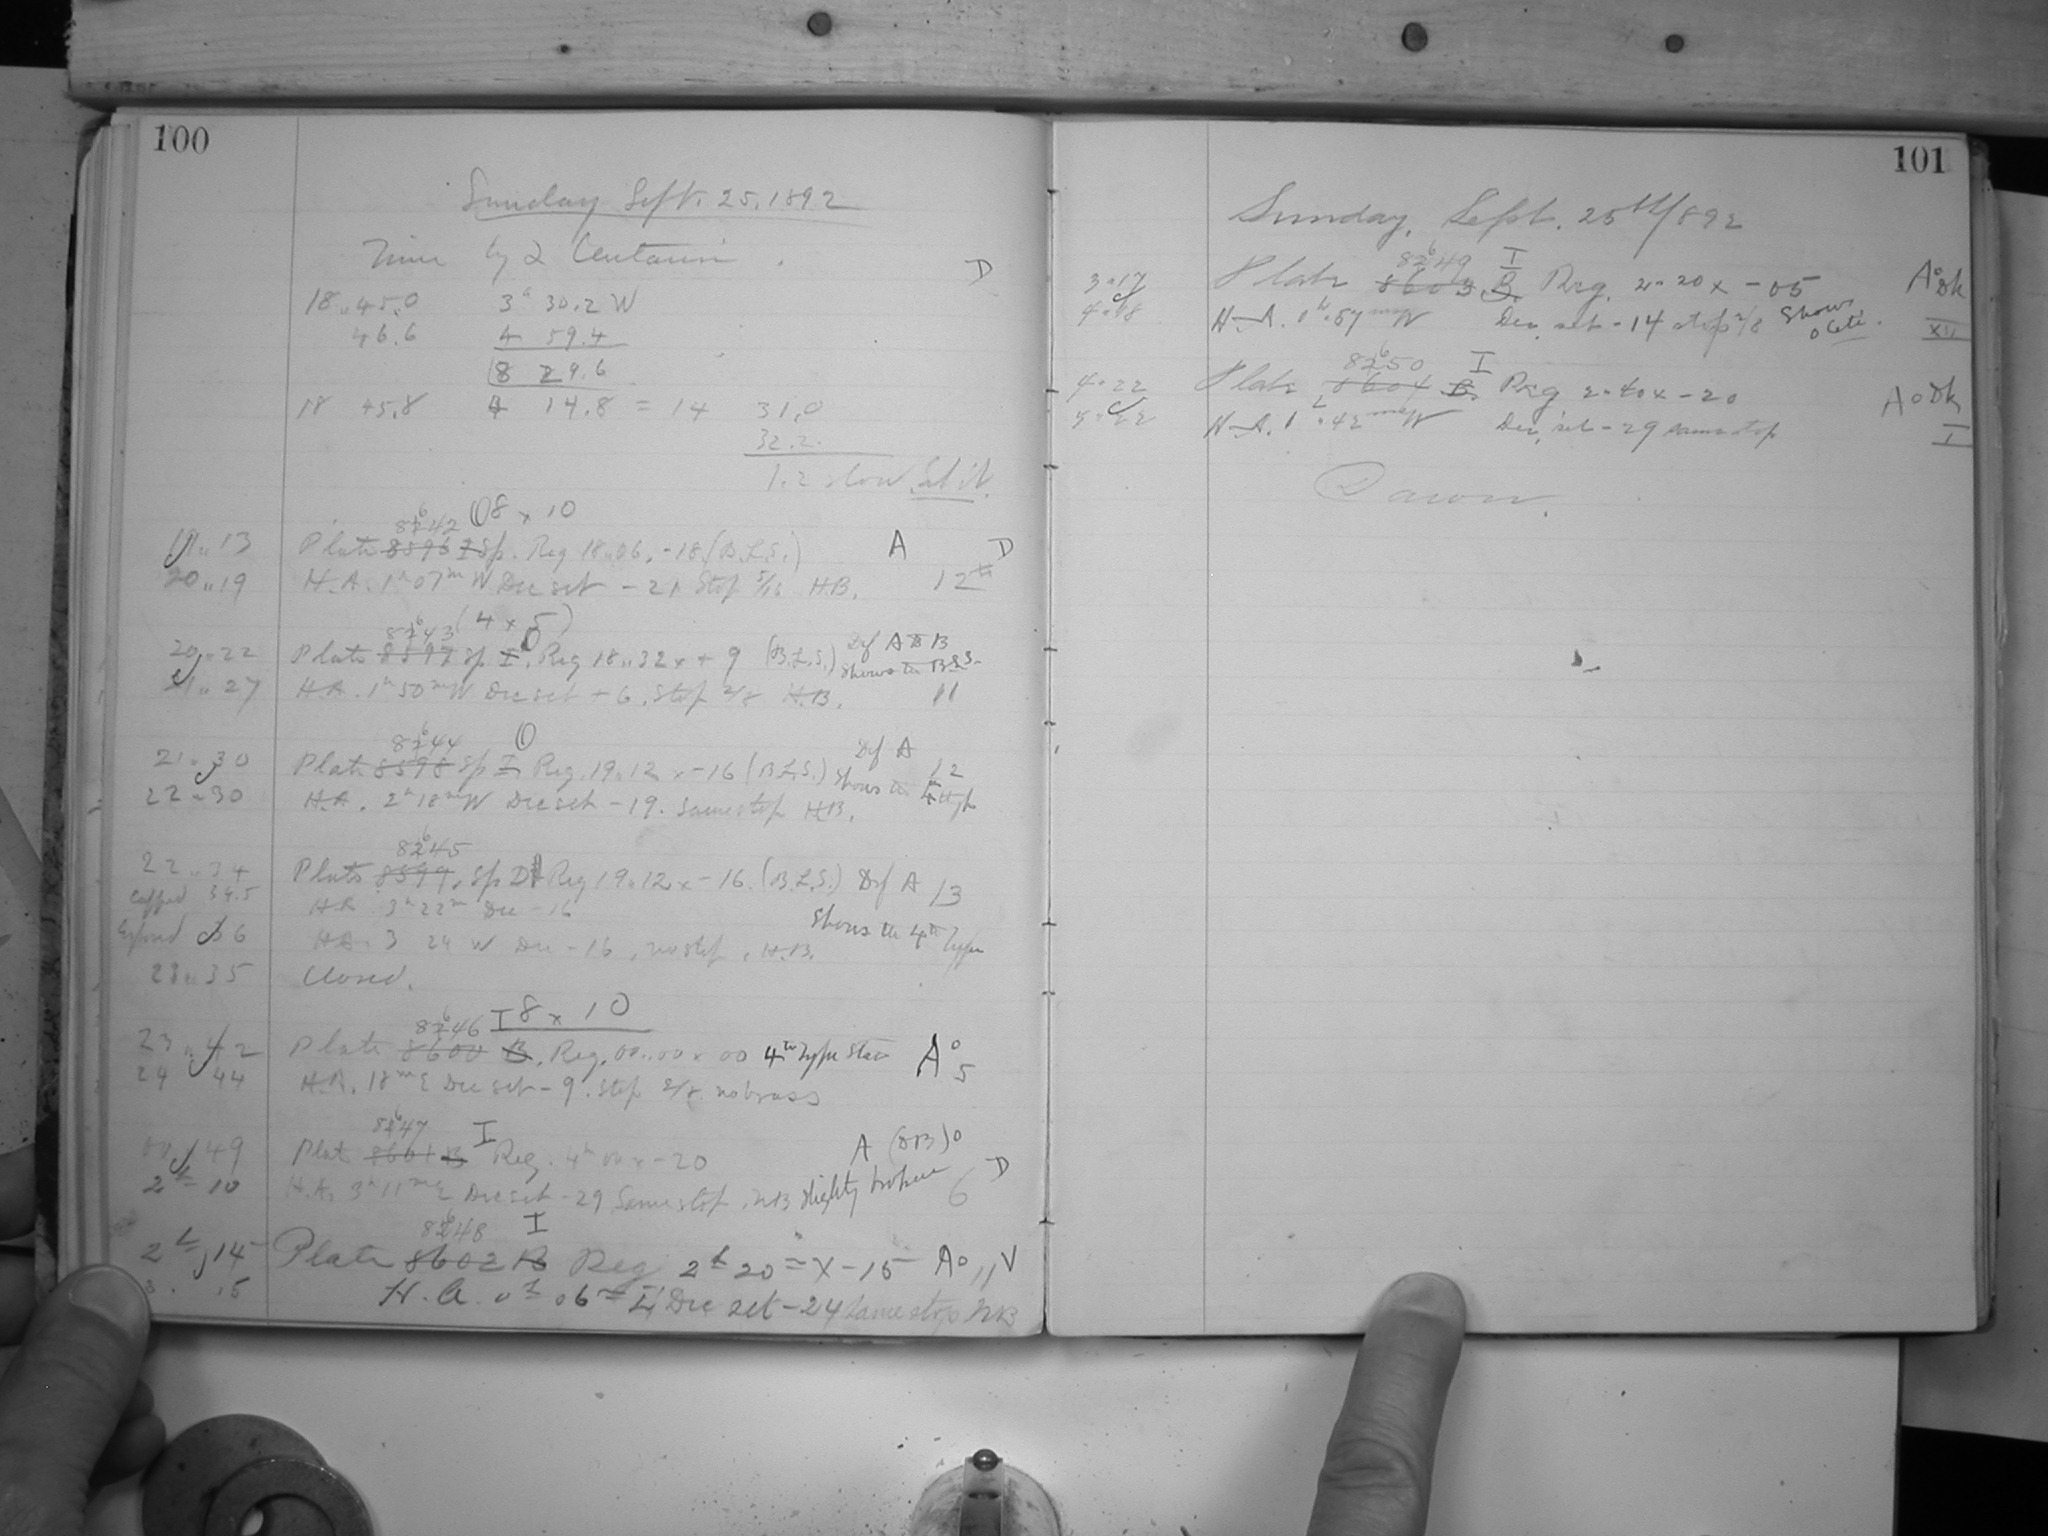 100
Sunday Sept. 25, 1892
Time by α Centauri. D
18..45.0 3h 30.2 W
46.6 4 59.4
8 29.6
18 45.8 14.8 = 14 31.0
32.2
1.2 slow Set it.
8642 O 8 x 10
19..13 Plate 8596 I Sp. Reg 18..06, -18 (B.L.S.) A D
20..19 H.A. 1h 07m W Dec set - 21 Stop 5/16 H.B. 12th
8643 (4 x 5) O
20..22 Plate 8597 Sp. I. Reg 18..32 x + 9 (B.L.S.) Def A B
21..27 H.A. 1h 50m W Dec set + 6. Stop 2/8 H.B. Shows the 11
8644 O
21..30 Plate 8598 Sp I Reg. 19..12 x -16 (B.L.S.) Def A 12
22..30 H.A. 2h 18m W Dec set -19. Same stop H.B. Shows the 4 type
8645
22..34 Plate 8599, Sp D Reg 19..12 x -16. (B.L.S.) Def A 13
Capped 34.5 H.A. 3h 22m Dec -16
Exposed 36 H.A. 3 24 W Dec -16, no stop, H.B. Shows the 4th Type
23..35 Closed.
8646 I 8 x 10
23..42 Plate 8600 B. Reg. 00..00 x 00 4th type Star A o
24 44 H.A. 18m E Dec set - 9. Stop 2/8 no brass 5
8647 I
00..49 Plate 8601 B Reg. 4h 00 x -20 A (DB) o
2h 10 H.A. 3h 11m E Dec set -29 Same stop. NB slightly broken 6 D
8648 I
2h 14 Plate 8602 B Reg 2h 20m x -15 A o 11 V
3. 15 H.A. 0h 06m E Dec set -24 same stop NB
101
Sunday, Sept. 25th 1892
8649 I
3..17 Plate 8603 B. Reg. 2..20 x -05 A o Dk
4..18 H.A. 0h..57m W Dec. set -14 stop 2/8 Shows o Ceti. XII
8650 I
4..22 Plate 8604 B. Reg 2..40 x -20 A o Dk
5..22 H.A. 1h..42m W Dec. set -29 same stop I
Dawn.